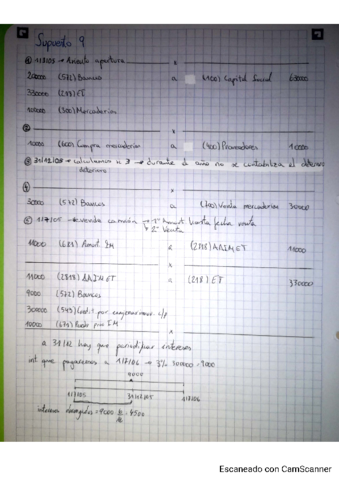 Supuesto 9
① 1/1/03 → Asiento apertura x
240000 (572) Bancos a (100) Capital Social 670000
330000 (218) ET
100000 (300) Mercaderías
② x
10000 (600) Compra mercaderías a (400) Proveedores 10000
③ 31/12/03 → calculamos → durante el año no se contabiliza el deterioro
deterioro
④ x
30000 (572) Bancos a (700) Venta mercaderías 30000
⑤ 1/7/05 → venta camión → 1º Amort hasta fecha venta
→ 2º Venta
11000 (681) Amort IM a (2818) AAIM ET 11000
x
11000 (2818) AAIM ET a (218) ET 330000
9000 (572) Bancos
300000 (543) Cdto. por c/p
10000 (671) Pérd. proc. IM x
a 31/12 hay que periodificar intereses
int que pagaremos a 1/7/06 → 3% 300000 = 9000
9000
1/7/05 31/12/05 1/7/06
intereses devengados = 9000 6/12 = 4500
Escaneado con CamScanner